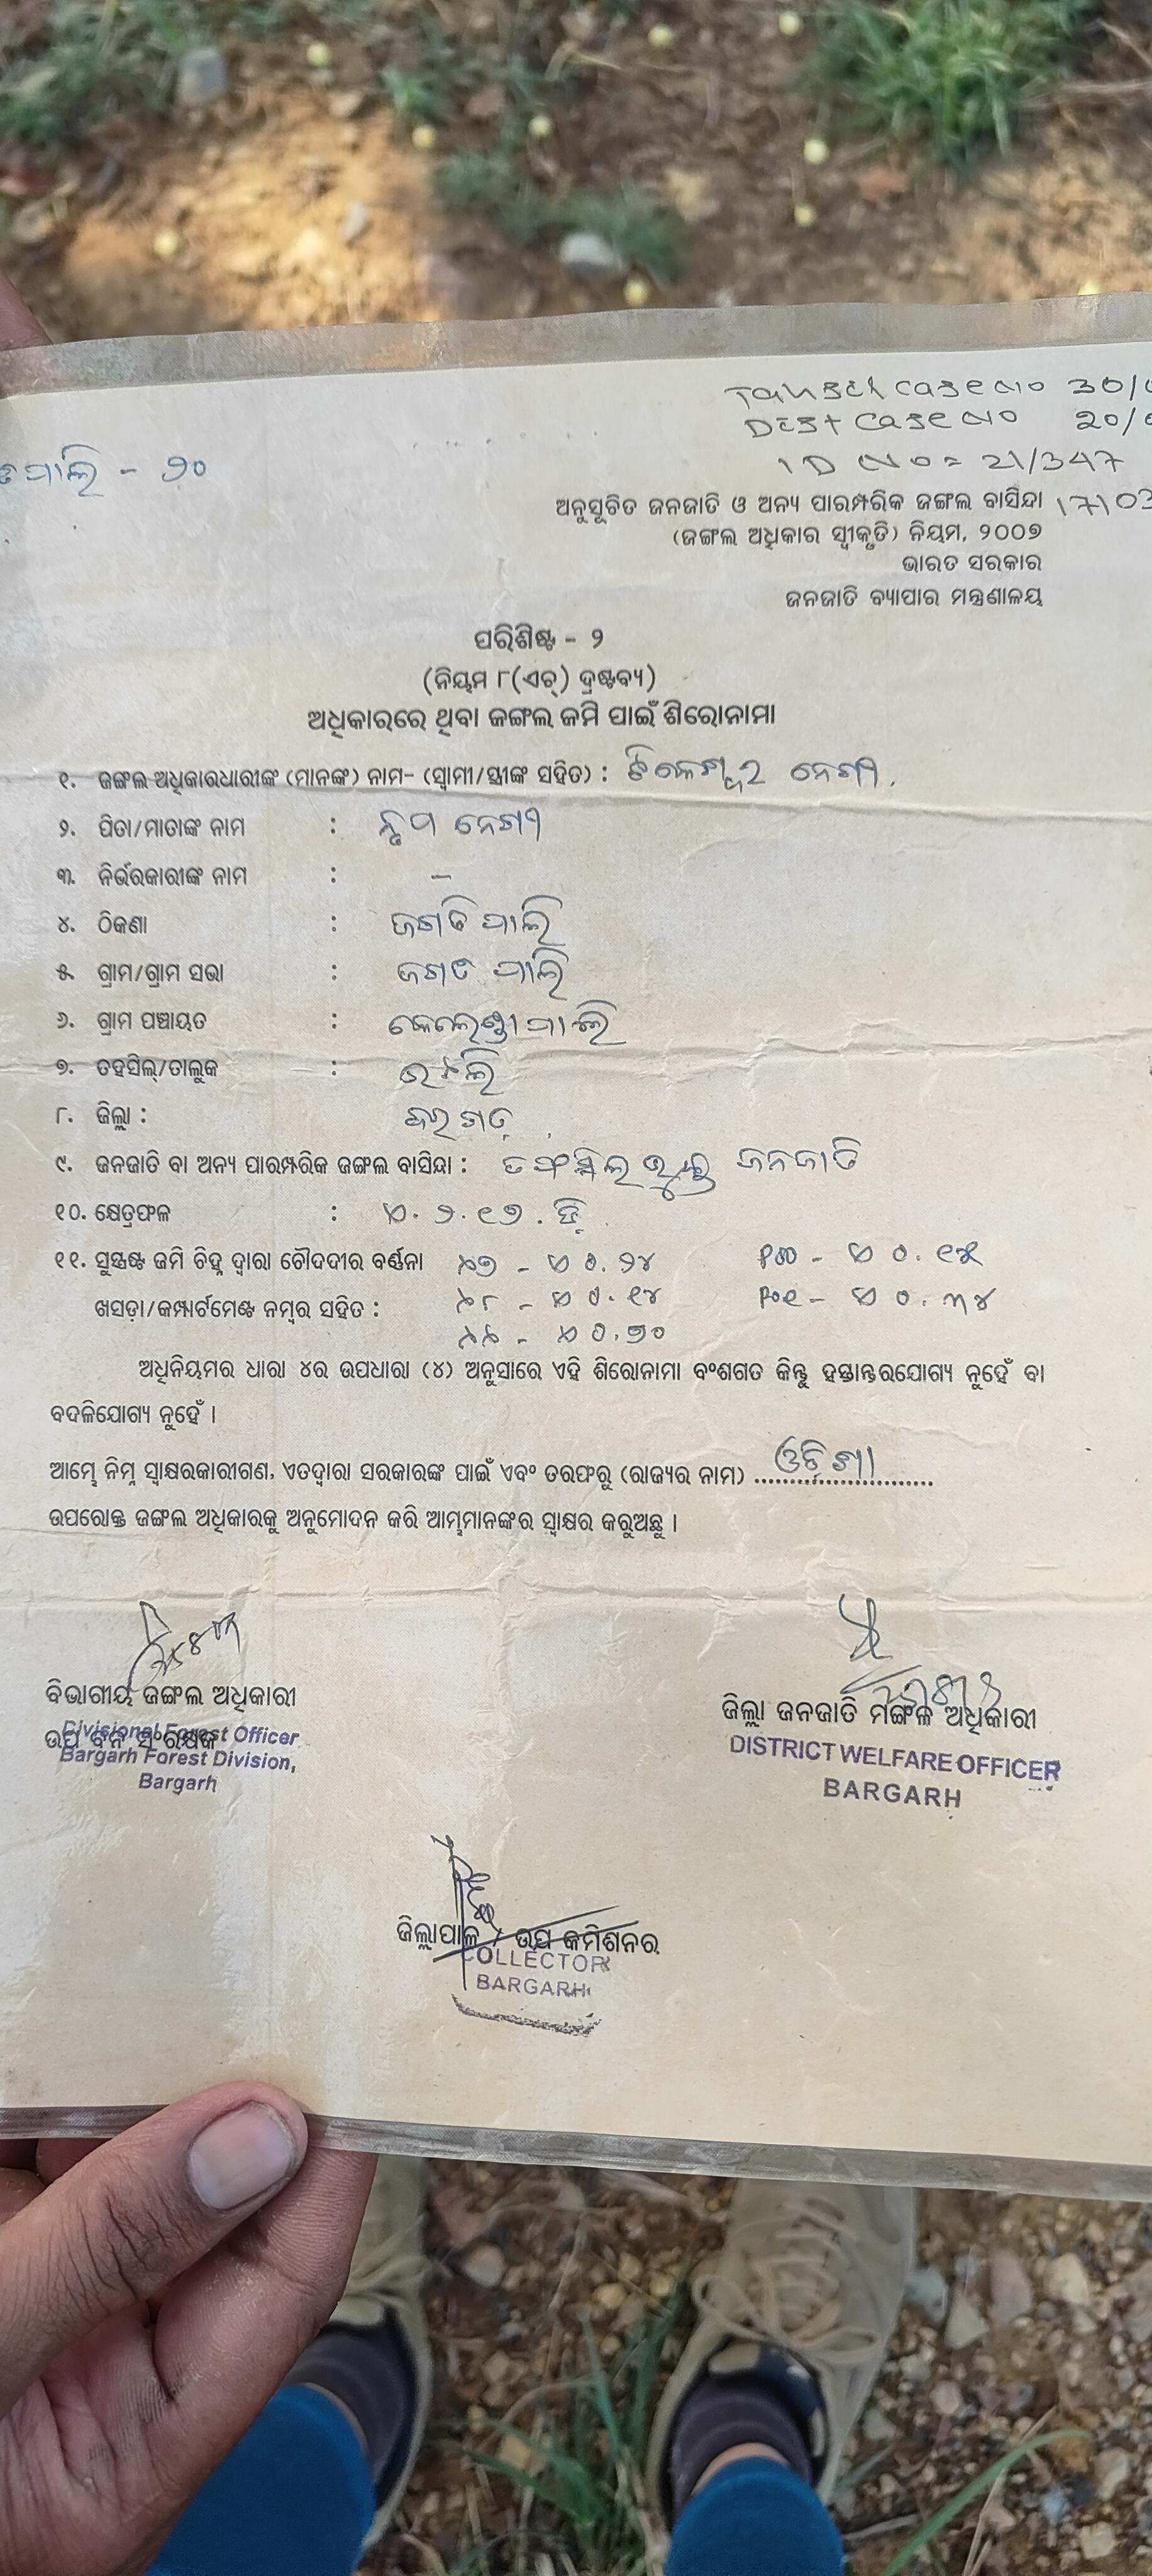 Case No 30/
Dist Case No 20/
ପାଲି - ୨୦
ID No = 21/347
ଅନୁସୂଚିତ ଜନଜାତି ଓ ଅନ୍ୟ ପାରମ୍ପରିକ ଜଙ୍ଗଲ ବାସିନ୍ଦା
(ଜଙ୍ଗଲ ଅଧିକାର ସ୍ୱୀକୃତି) ନିୟମ, ୨୦୦୭
ଭାରତ ସରକାର
ଜନଜାତି ବ୍ୟାପାର ମନ୍ତ୍ରଣାଳୟ
ପରିଶିଷ୍ଟ - ୨
(ନିୟମ ୮(ଏଚ୍) ଦ୍ରଷ୍ଟବ୍ୟ)
ଅଧିକାରରେ ଥିବା ଜଙ୍ଗଲ ଜମି ପାଇଁ ଶିରୋନାମା
୧. ଜଙ୍ଗଲ ଅଧିକାରଧାରୀଙ୍କ (ମାନଙ୍କ) ନାମ- (ସ୍ୱାମୀ/ସ୍ତ୍ରୀଙ୍କ ସହିତ) : ଟିକେଶ୍ୱର ନେଗୀ.
୨. ପିତା/ମାତାଙ୍କ ନାମ : ନେଗୀ
୩. ନିର୍ଭରକାରୀଙ୍କ ନାମ : –
୪. ଠିକଣା : ଜଗତିପାଲି
୫. ଗ୍ରାମ/ଗ୍ରାମ ସଭା : ଜଗତପାଲି
୬. ଗ୍ରାମ ପଞ୍ଚାୟତ : କେଲେଣ୍ଡାପାଲି
୭. ତହସିଲ୍/ତାଲୁକ :
୮. ଜିଲ୍ଲା : ବରଗଡ଼
୯. ଜନଜାତି ବା ଅନ୍ୟ ପାରମ୍ପରିକ ଜଙ୍ଗଲ ବାସିନ୍ଦା : ତଫସିଲଭୁକ୍ତ ଜନଜାତି
୧୦. କ୍ଷେତ୍ରଫଳ : ଏ. ୨.୧୭. ଡି.
୧୧. ସୁସ୍ପଷ୍ଟ ଜମି ଚିହ୍ନ ଦ୍ୱାରା ଚୌଦଦୀର ବର୍ଣ୍ଣନା ୯୭ - ଏ ୦.୨୪
ଖସଡ଼ା/କମ୍ପାର୍ଟମେଣ୍ଟ ନମ୍ବର ସହିତ : ୯୮ - ଏ ୦.୧୪ ଏ ୦.୩୪
୯୯ - ଏ ୦.୭୦
ଅଧିନିୟମର ଧାରା ୪ର ଉପଧାରା (୪) ଅନୁସାରେ ଏହି ଶିରୋନାମା ବଂଶଗତ କିନ୍ତୁ ହସ୍ତାନ୍ତରଯୋଗ୍ୟ ନୁହେଁ ବା
ବଦଳିଯୋଗ୍ୟ ନୁହେଁ ।
ଆମ୍ଭେ ନିମ୍ନ ସ୍ୱାକ୍ଷରକାରୀଗଣ, ଏତଦ୍ୱାରା ସରକାରଙ୍କ ପାଇଁ ଏବଂ ତରଫରୁ (ରାଜ୍ୟର ନାମ) ଓଡ଼ିଶା
ଉପରୋକ୍ତ ଜଙ୍ଗଲ ଅଧିକାରକୁ ଅନୁମୋଦନ କରି ଆମ୍ଭମାନଙ୍କର ସ୍ୱାକ୍ଷର କରୁଅଛୁ ।
ବିଭାଗୀୟ ଜଙ୍ଗଲ ଅଧିକାରୀ
ଉପ ବନ ସଂରକ୍ଷକ
Divisional Forest Officer
Bargarh Forest Division,
Bargarh
ଜିଲ୍ଲା ଜନଜାତି ମଙ୍ଗଳ ଅଧିକାରୀ
DISTRICT WELFARE OFFICER
BARGARH
ଜିଲ୍ଲାପାଳ / ଉପ କମିଶନର
COLLECTOR
BARGARH